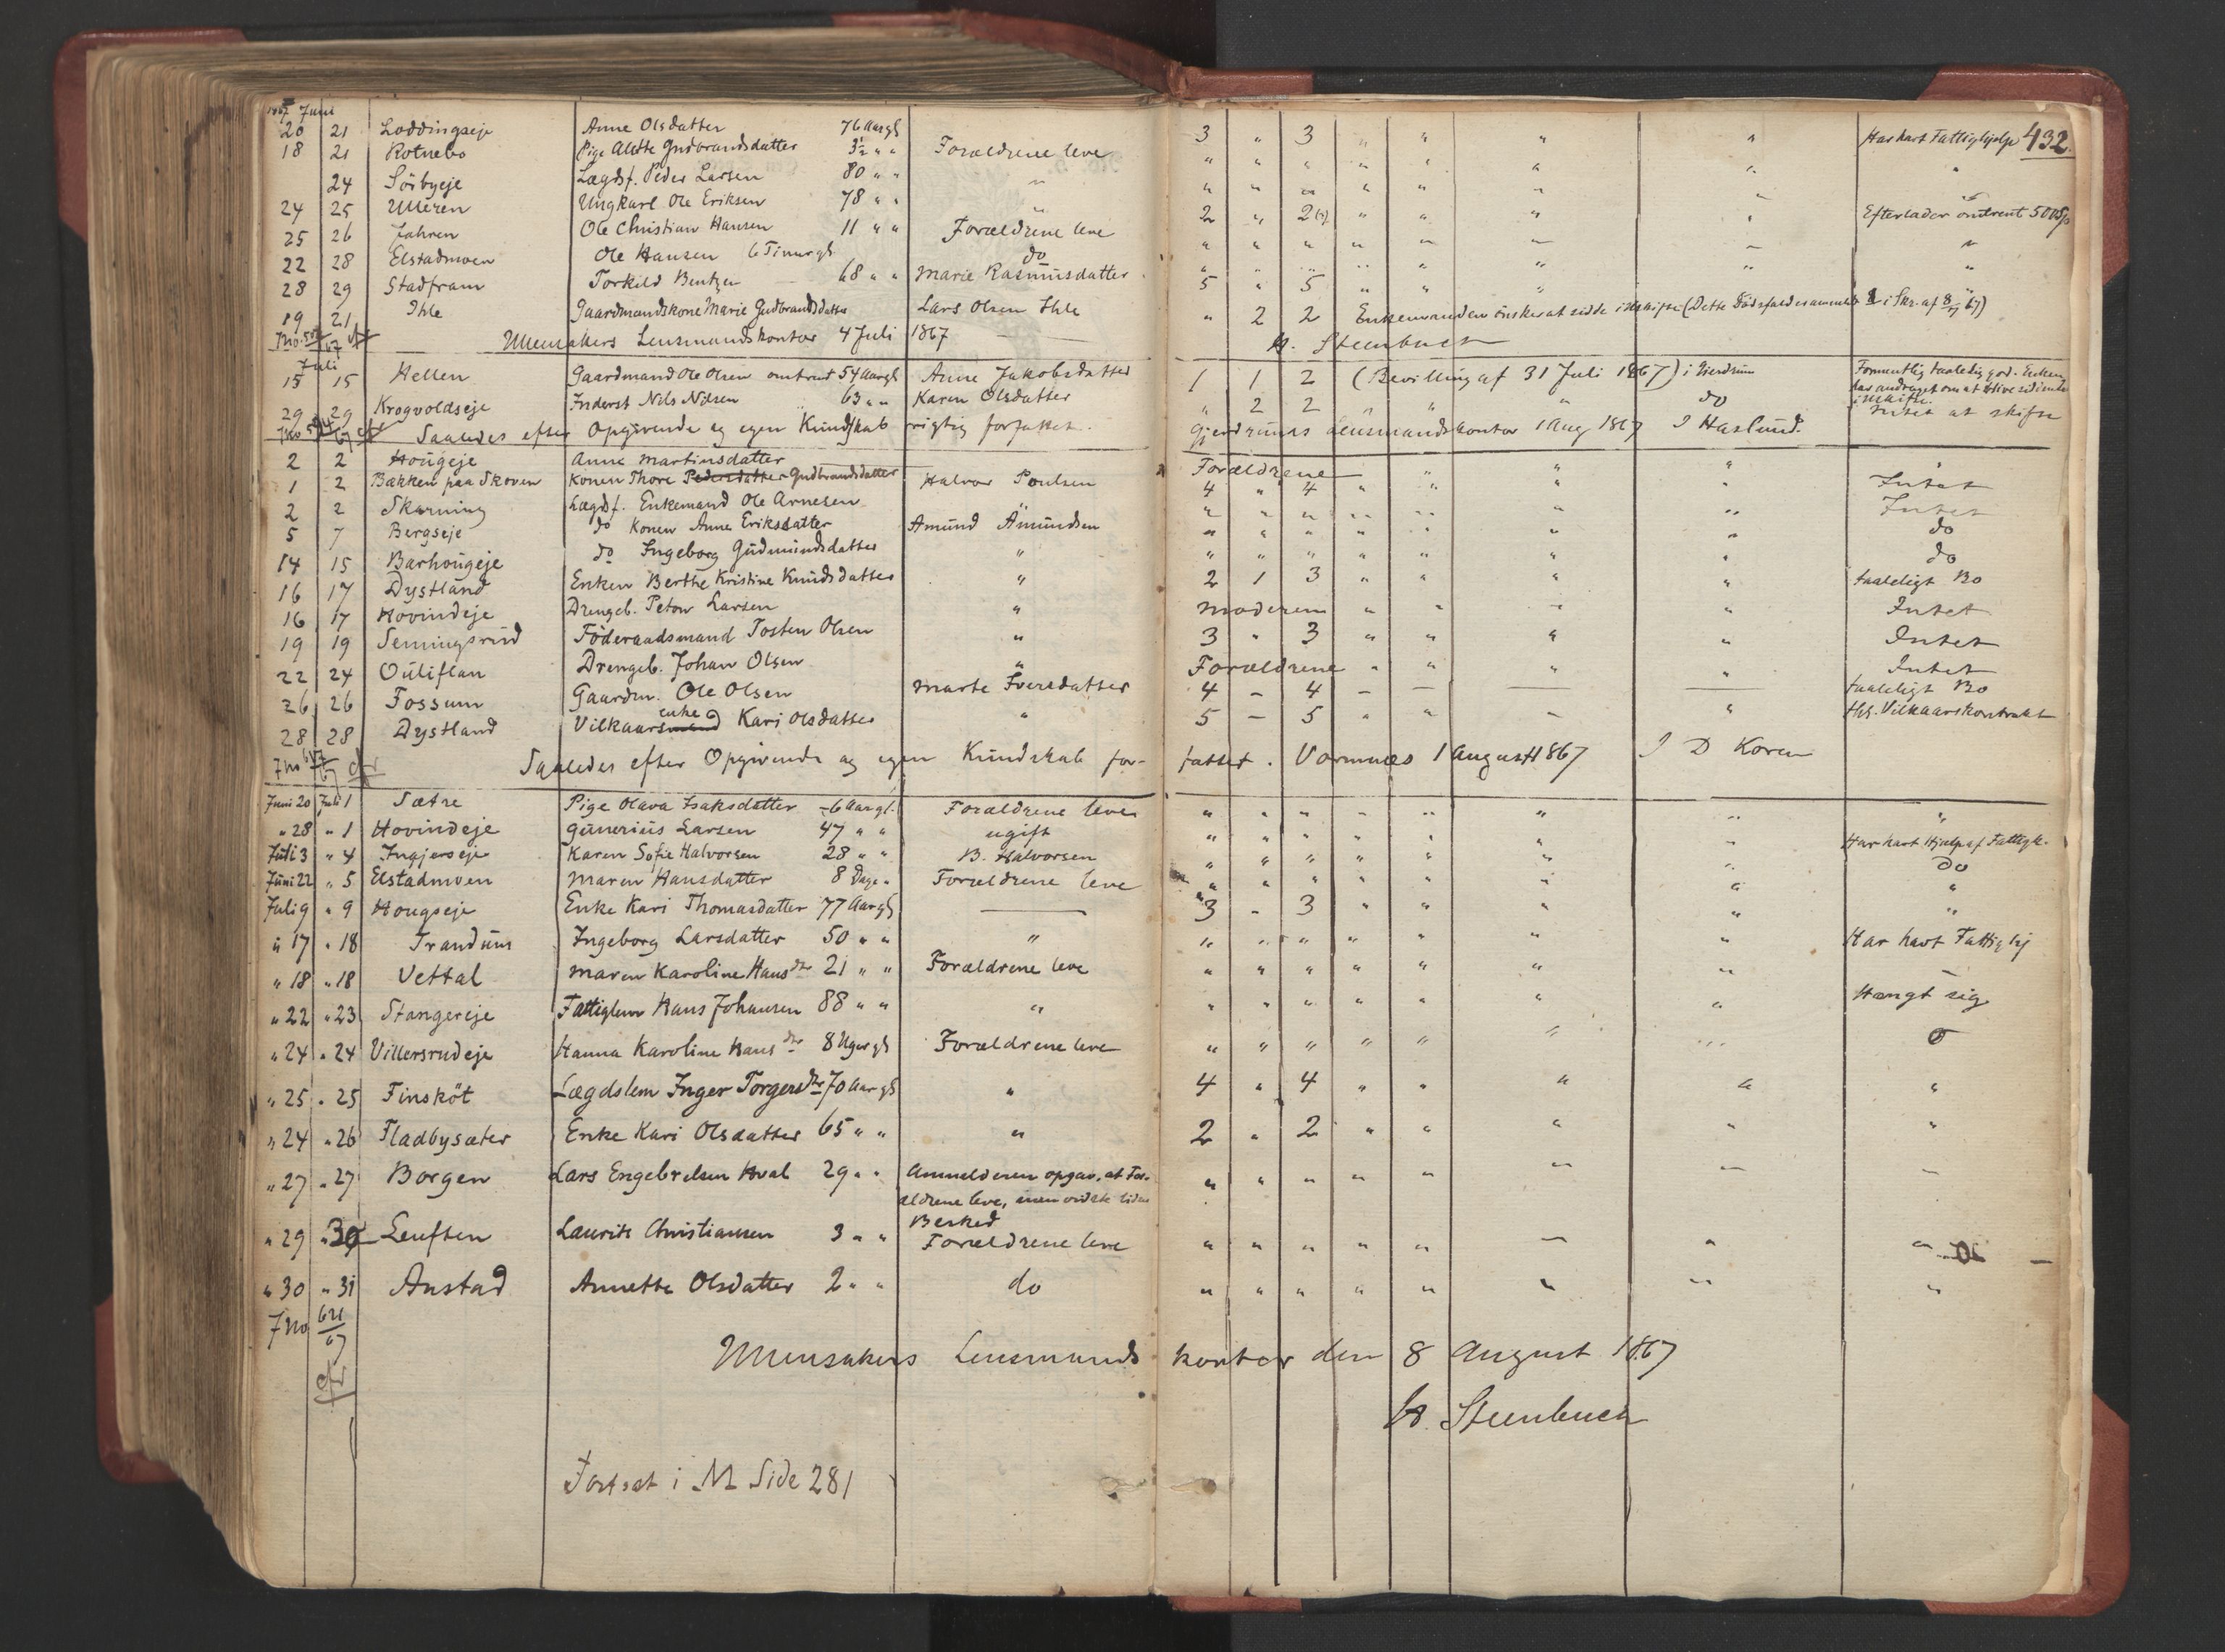 1867 Juni
20 21 Loddingseje Anne Olsdatter 76 Aar gl 3 " 3 " " " " Har havt Fattighjælp 432.
18 21 Rotnebo Pige Alette Gudbrandsdatter 3½ " " Forældrene leve " " " " " " " "
24 Sörbyeje Lægdsf. Peder Larsen 80 " " " " " " " " " "
24 25 Ulleren Ungkarl Ole Eriksen 78 " " " 2 " 2 (?) " " " " Efterlader omtrent 50 Sp
25 26 Jahren Ole Christian Hansen 11 " " Forældrene leve " " " " " " " "
22 28 Elstadmoen Ole Hansen 6 Timer gl do " " " " " " " "
28 29 Stadfram Torkild Bentzen 68 " " Marie Rasmusdatter 5 " 5 " " " "
19 21 Ihle Gaardmandskone Marie Gudbrandsdatter Lars Olsen Ihle " 2 2 Enkemanden önsker at sidde i uskifte (Dette Dödsfald i Skr. af 8/7 67)
Ullensakers Lensmandskontor 4 Juli 1867 H. Steenbuch
Juli
15 15 Hellen Gaardmand Ole Olsen omtrent 54 Aar gl Anne Jakobsdatter 1 1 2 (Bevilling af 31 Juli 1867) i Gjerdrum Formentlig taalelig god. Enken
har andraget om at blive sidende
i uskifte.
29 29 Krogvoldseje Inderst Nils Nilsen 63 " " Karen Olsdatter " 2 2 " " " do Intet at skifte
Saaledes efter Opgivende og egen Kundskab rigtig forfattet. Gjerdrums Lensmandskontor 1 Aug 1867 J Haslund.
2 2 Hougeje Anne Martinsdatter Forældrene " " " " "
1 2 Bækken paa Skoven Konen Thore Pedersdatter Gudbrandsdatter Halvor Poulsen 4 " 4 " " " " Intet
2 2 Skarning Lægdsf. Enkemand Ole Arnesen " " " " " " " " Intet
5 7 Bergseje do Konen Anne Eriksdatter Amund Amundsen " " " " " " " do
14 15 Barhougeje do Ingeborg Gudmundsdatter " " " " " " " " do
16 17 Dystland Enken Berthe Kristine Knudsdatter " 2 1 3 " " " " taaleligt Bo
16 17 Hovindeje Drengeb. Petow Larsen " Moderen " " " " Intet
19 19 Semmingsrud Föderaadsmand Tosten Olsen " 3 " 3 " " " " Intet
22 24 Ouliflan Drengeb. Johan Olsen " Forældrene " " " " Intet
26 26 Fossum Gaardm. Ole Olsen Marte Iversdatter 4 – 4 – – — — taaleligt Bo
28 28 Dystland Vilkaarsmand enke Kari Olsdatter " 5 – 5 " " – " Vilkaarskontrakt
Saaledes efter Opgivende og egen Kundskab for- fattet. Vormnæs 1 August 1867 J D Koren
Juni 20 Juli 1 Sætre Pige Olava Isaksdatter 6 Aar gl. Forældrene leve " " " " " " " "
" 28 " 1 Hovindeje Gunerius Larsen 47 " " ugift " " " " " " " Har havt Hjælp af Fattigk.
Juli 3 " 4 Ingjerseje Karen Sofie Halvorsen 28 " " B. Halvorsen " " " " " " " do
Juni 22 " 5 Elstadmoen Maren Hansdatter 8 Dage " Forældrene leve " " " " " " " "
Juli 9 " 9 Hougseje Enke Kari Thomasdatter 77 Aar gl — 3 – 3 " " " " "
" 17 " 18 Trandum Ingeborg Larsdatter 50 " " " " " " " " " " Har havt Fattighj
" 18 " 18 Vettal Maren Karoline Hansdtr 21 " " Forældrene leve " " " " " " "
" 22 " 23 Stangereje Fattiglem Hans Johansen 88 " " " " " " " " " " Hængt sig
" 24 " 24 Villersrudeje Hanna Karoline Hansdtr 8 Uger gl Forældrene leve " " " " " " " 0
" 25 " 25 Finsköt Lægdslem Inger Torgersdtr 70 Aar gl " 4 " 4 " " " " "
" 24 " 26 Fladbysæter Enke Kari Olsdatter 65 " " " 2 " 2 " " " " "
" 27 " 27 Borgen Lars Engebretsen Hval 29 " " Anmelderen opgav, at For-
ældrene leve, men vidste liden
Besked " " " " " " " "
" 29 " 30 Leuften Laurits Christiansen 3 " " Forældrene leve " " " " " " " "
" 30 " 31 Anstad Annette Olsdatter 2 " " do " " " " " " " "
Jno 621/67
cfr
Ullensakers Lensmandskontor den 8 August 1867
H. Steenbuch
Fortsat i M Side 281